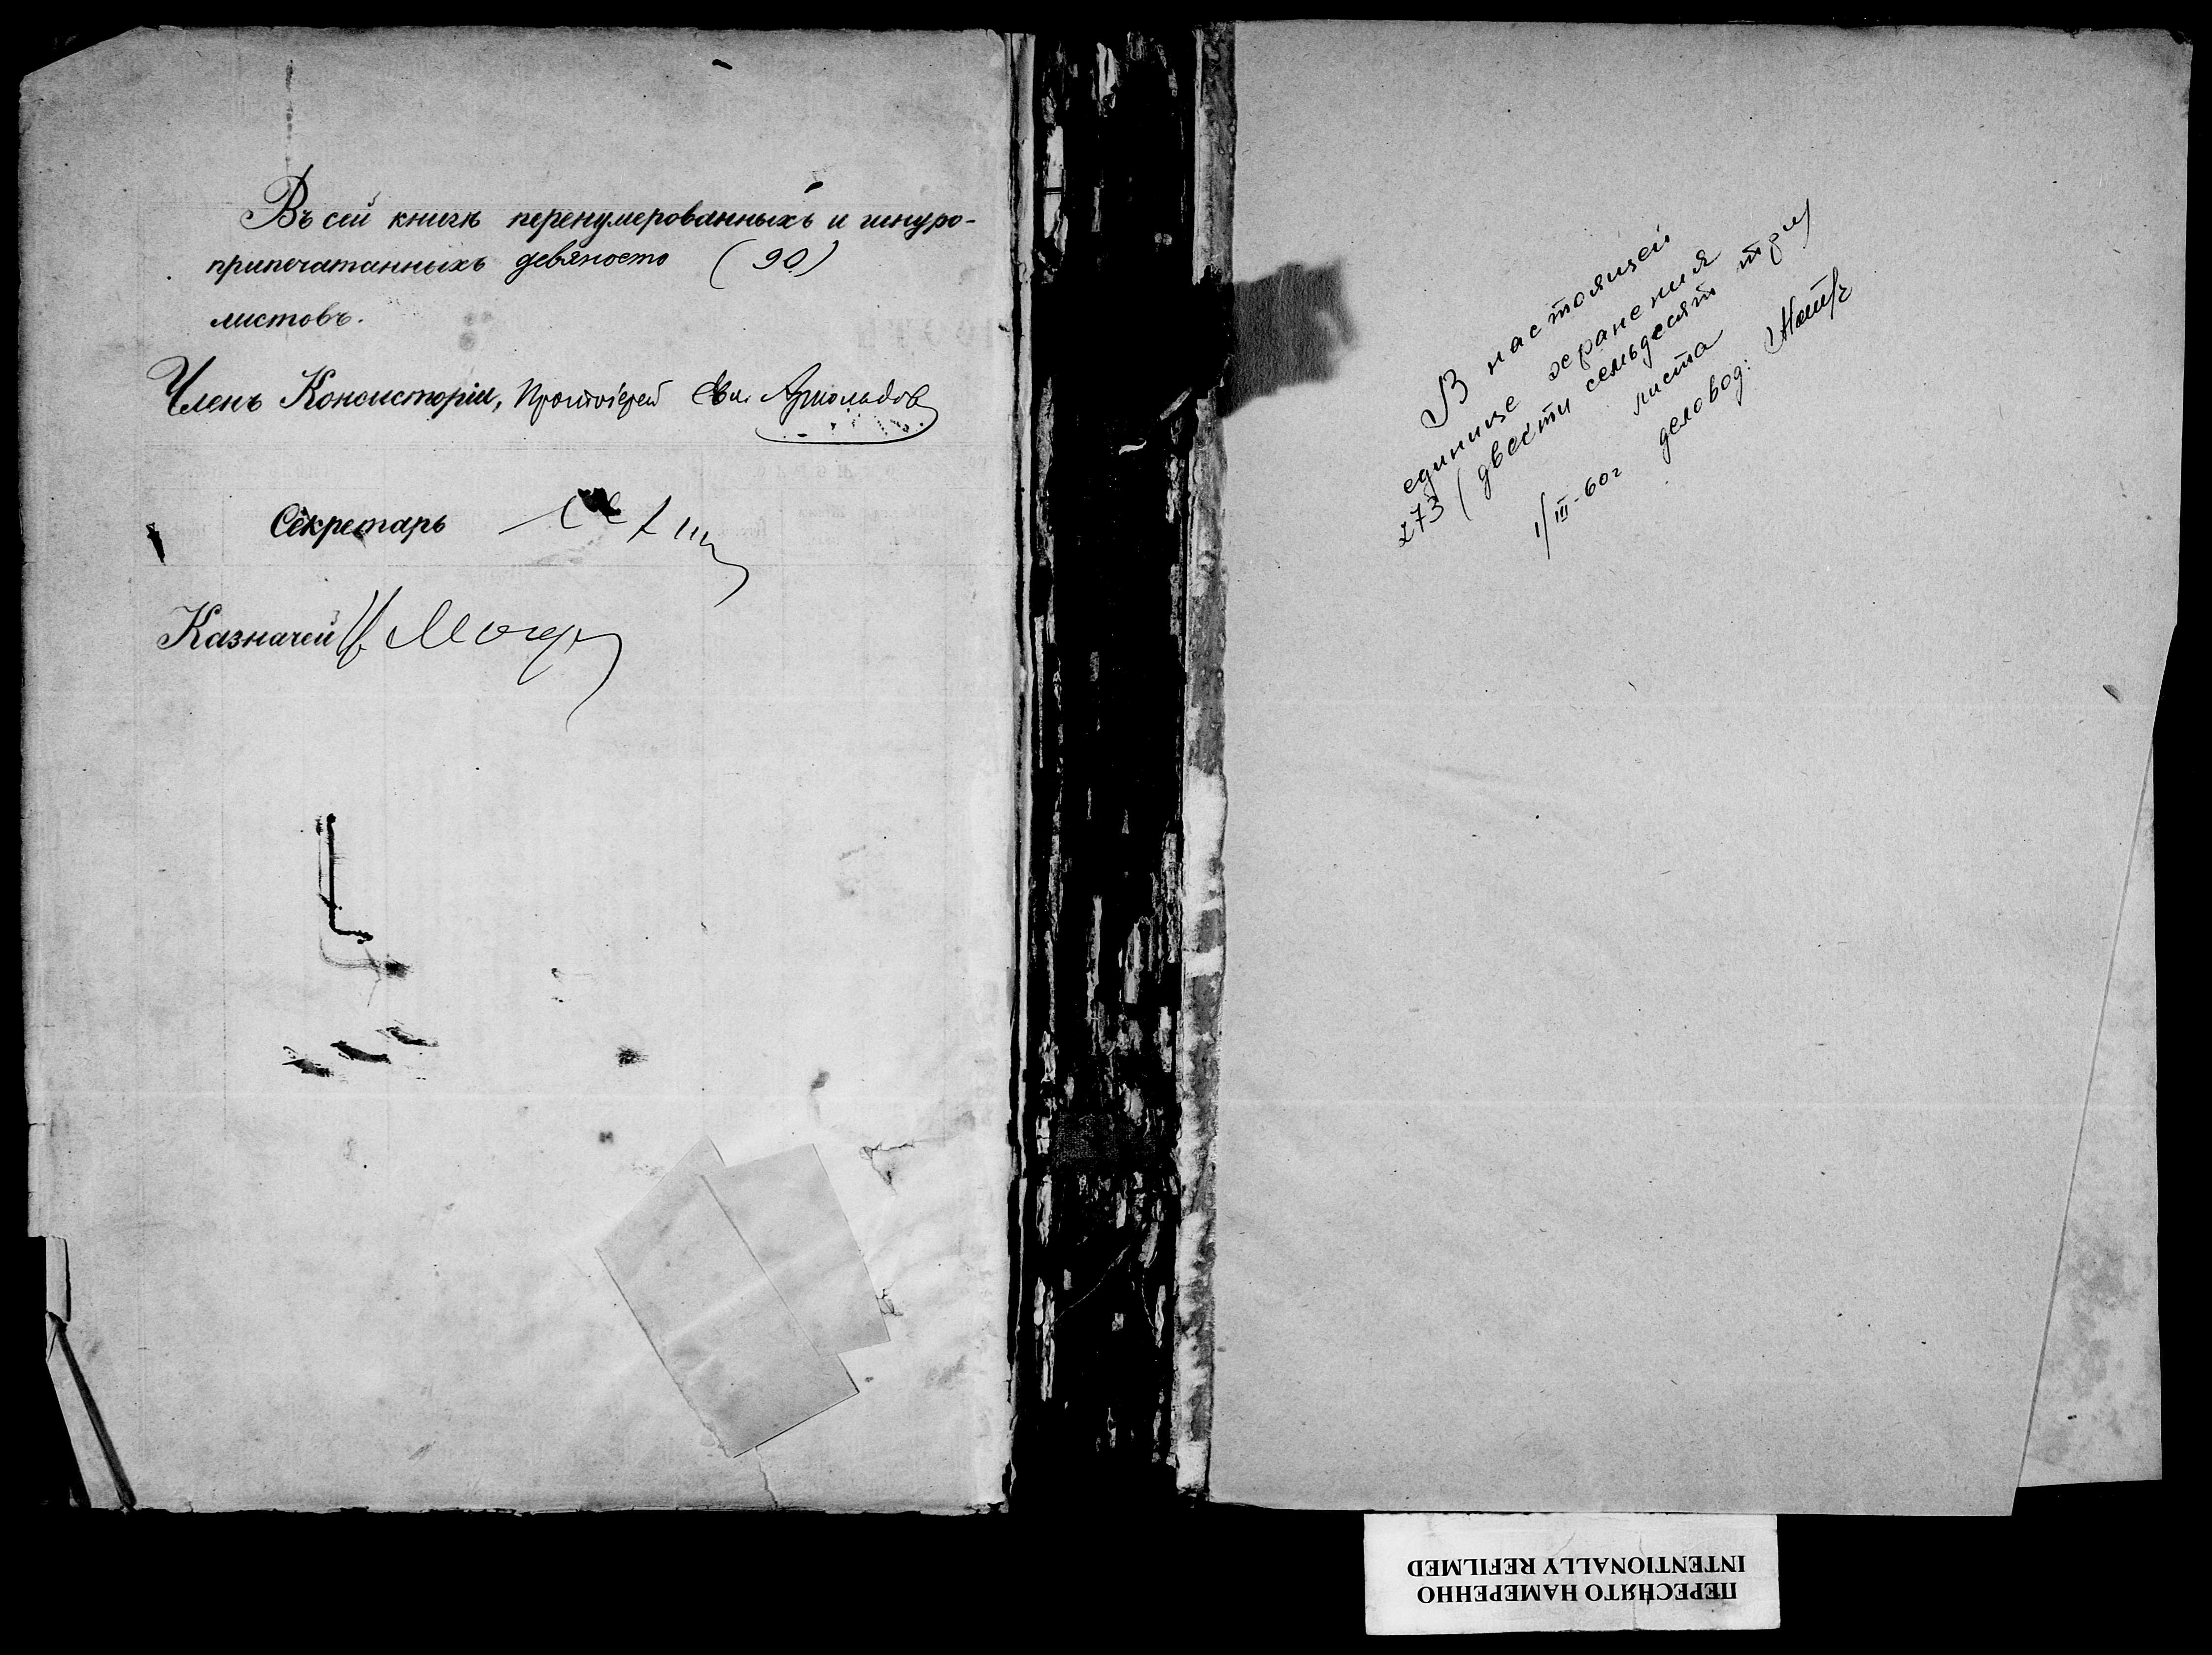 Въ сей книгѣ перенумерованныхъ и шнуро-
припечатанныхъ девяносто (90)
листовъ.
Членъ Консисторіи, Протоіерей
Секретарь
Казначей
В настоящей
единице хранения
273 (двести семьдесят три)
листа
1/III-60г деловод:
ПЕРЕСНЯТО НАМЕРЕННО
INTENTIONALLY REFILMED